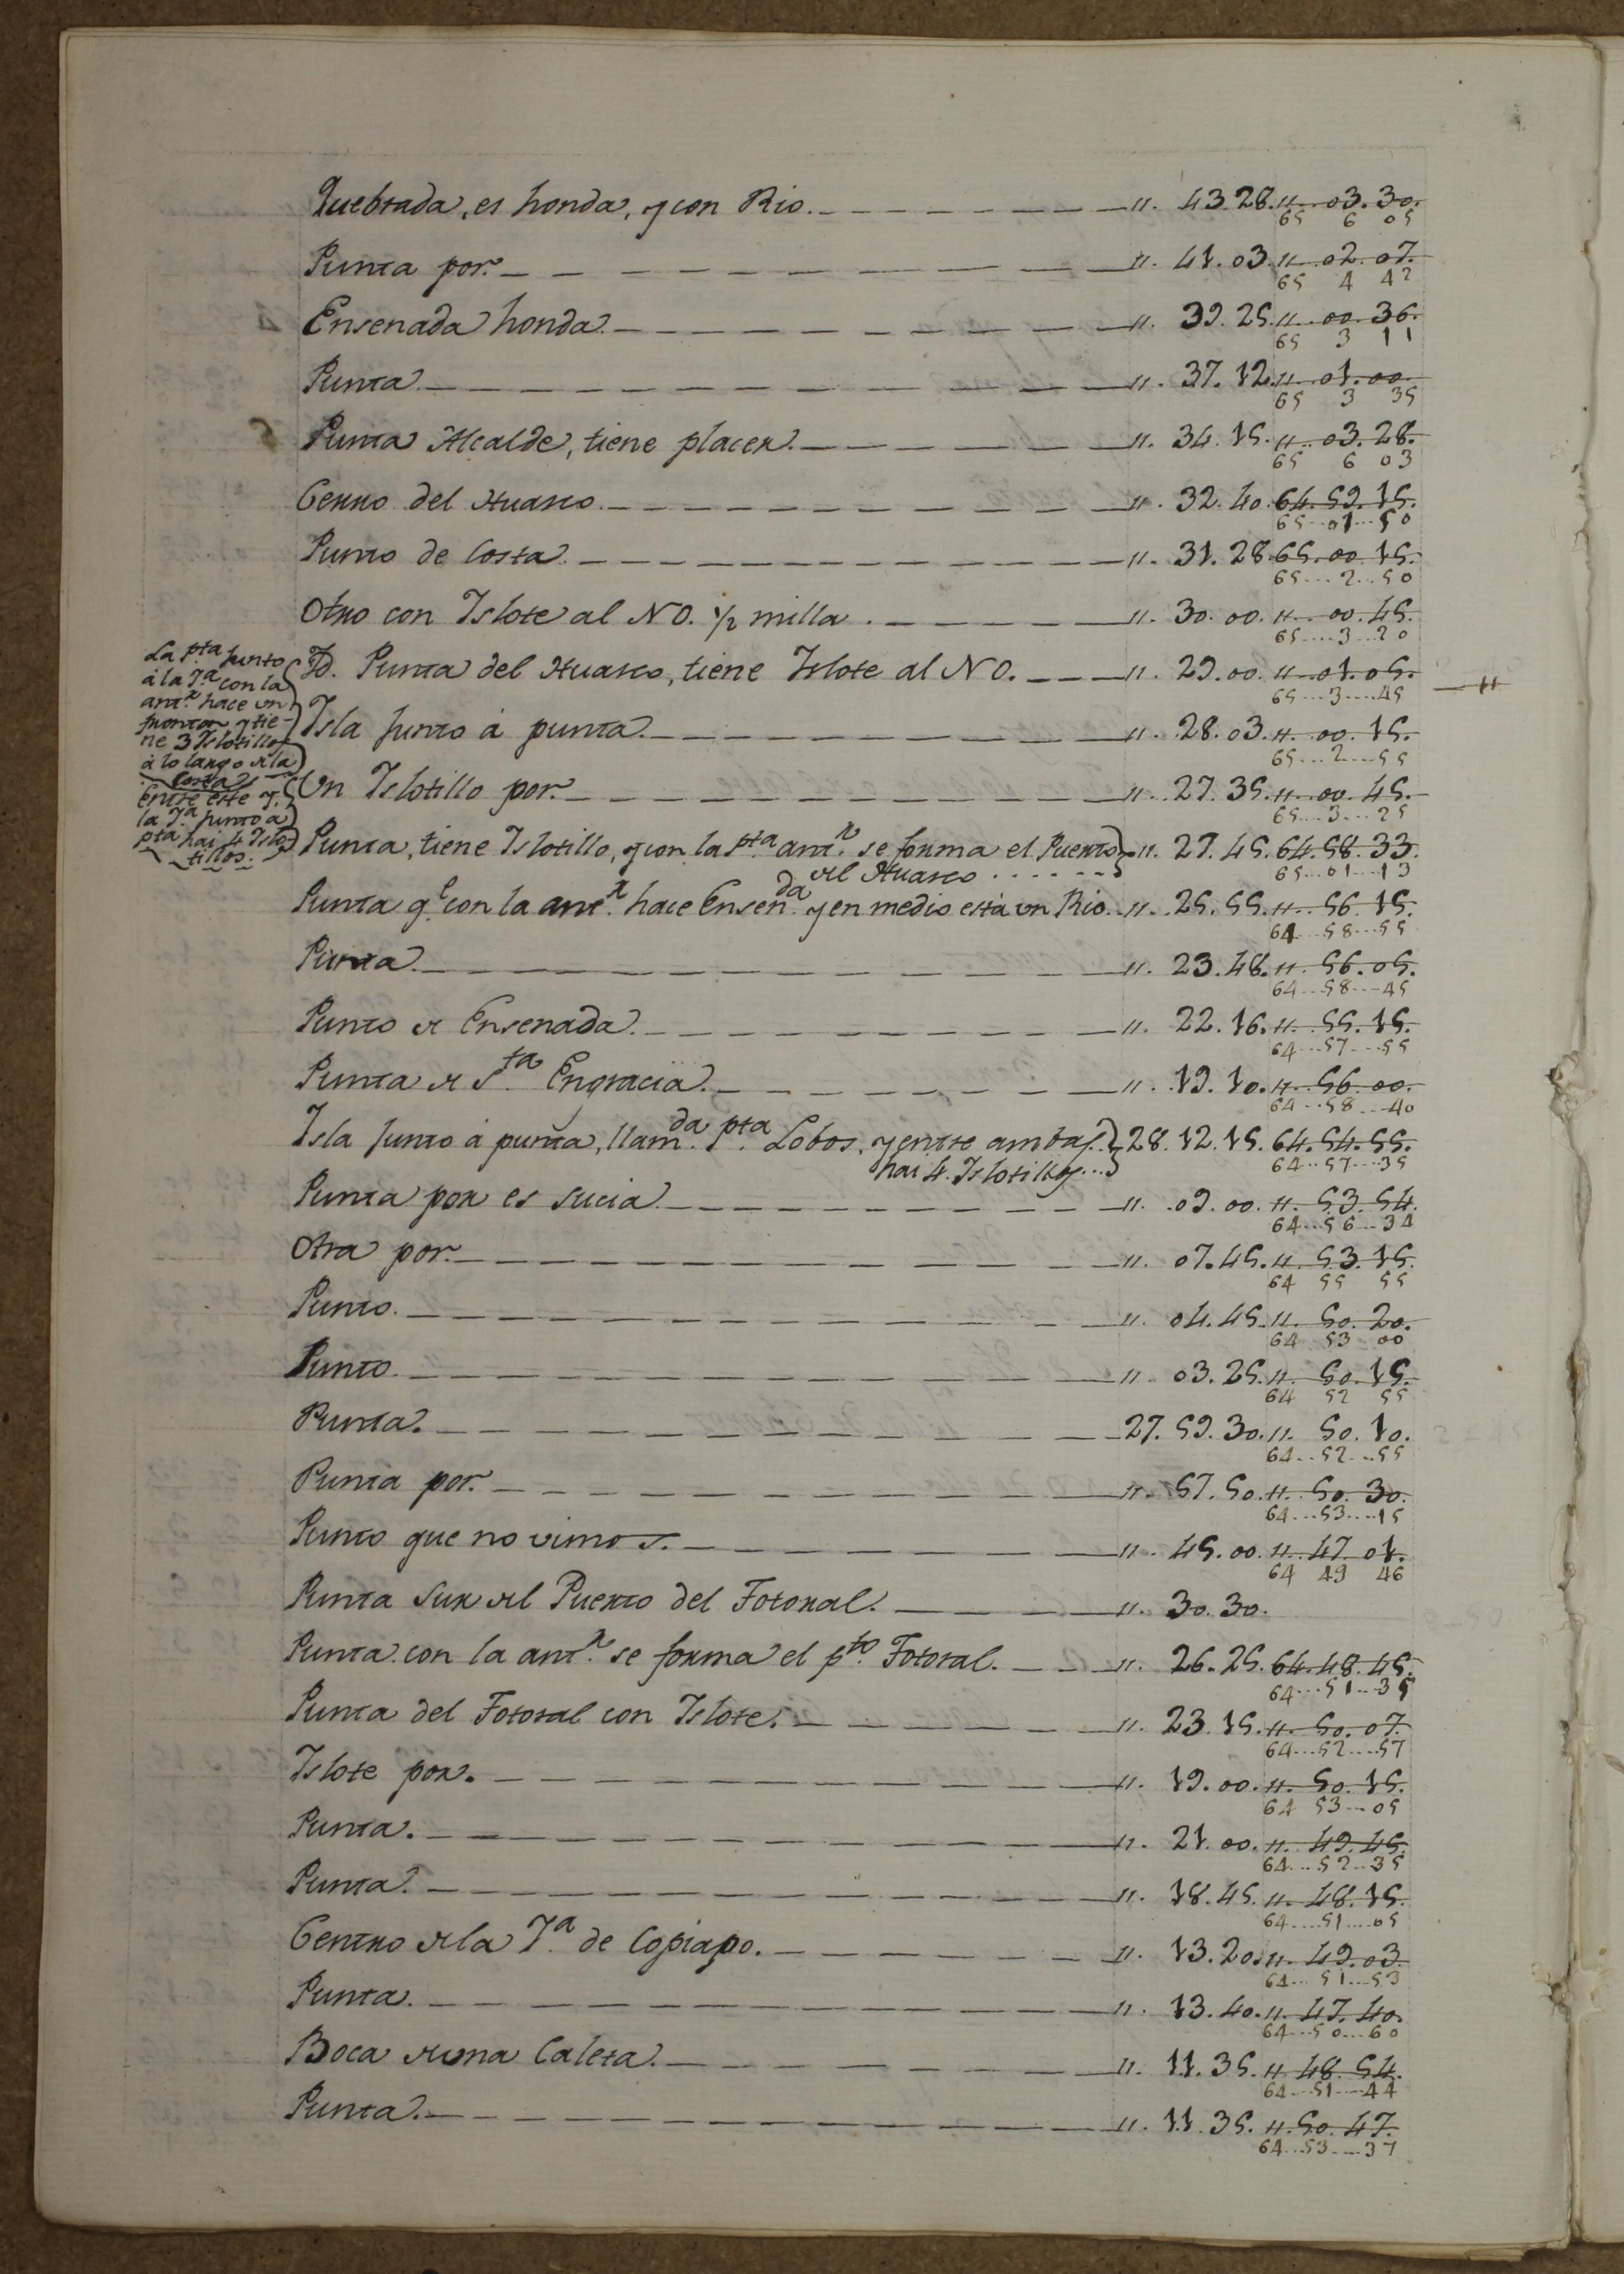 Quebrada, es honda, y con Rio. " . 43.28. " . 03.30.
65 6 05
Punta por. " . 41.03. " . 02.07.
65 4 42
Ensenada honda. " . 39.25. " . 00.36.
65 3 11
Punta. " . 37.12. " . 01.00.
65 3 35
Punta Alcalde, tiene placer. " . 34.15. " . 03.28.
65 6 03
Cerro del Huasco. " . 32.40. 64.59.15.
65 01 50
Punto de Costa. " . 31.28. 65.00.15.
65 2 50
Otro con Islote al NO. 1/2 milla. " . 30.00. " . 00.45.
65 3 20
Yd. Punta del Huasco, tiene Islote al NO. " . 29.00. " . 01.05.
65 3 45
Isla junto á punta. " . 28.03. " . 00.15.
65 2 55
Un Islotillo por. " . 27.35. " . 00.45.
65 3 25
Punta, tiene Islotillo, y con la pta. antr. se forma el Puerto " . 27.45. 64.58.33.
del Huasco
65 01 13
Punta qe. con la antr. hace Ensenda. y en medio está un Rio. " . 25.55. " . 56.15.
64 58 55
Punta. " . 23.48. " . 56.05.
64 58 45
Punto de Ensenada. " . 22.16. " . 55.15.
64 57 55
Punta de Sta. Engracia. " . 19.10. " . 56.00.
64 58 40
Isla junto á punta, llamda. pta. Lobos, y entre ambas 28.12.15. 64.54.55.
hai 4. Islotillos
64 57 35
Punta por es sucia. " . 09.00. " . 53.54.
64 56 34
Otra por. " . 07.45. " . 53.15.
64 55 55
Punto. " . 04.45. " . 50.20.
64 53 00
Punto. " . 03.25. " . 50.15.
64 52 55
Punta. 27.59.30. " . 50.10.
64 52 55
Punta por. " . 57.50. " . 50.30.
64 53 15
Punto que no vimos. " . 45.00. " . 47.01.
64 49 46
Punta Sur del Puerto del Totoral. " . 30.30.
Punta con la antr. se forma el pto. Totoral. " . 26.25. 64.48.45.
64 51 35
Punta del Totoral con Islote. " . 23.15. " . 50.07.
64 52 57
Islote por. " . 19.00. " . 50.15.
64 53 05
Punta. " . 21.00. " . 49.45.
64 52 35
Punta. " . 18.45. " . 48.15.
64 51 05
Centro de la Ya. de Copiapo. " . 13.20. " . 49.03.
64 51 53
Punta. " . 13.40. " . 47.40.
64 50 60
Boca de una Caleta. " . 11.35. " . 48.54.
64 51 44
Punta. " . 11.35. " . 50.47.
64 53 37
La pta. junto
á la Ya. con la
antr. hace un
y tie-
ne 3 Islotillos
á lo largo de la
Costa
Entre este y
la Ya. junto á
pta. hai 4 Islo
tillos.